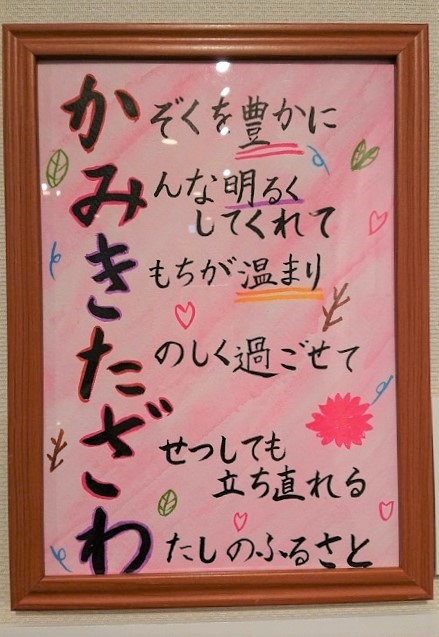 かぞくを豊かに
みんな明るく
してくれて
きもちが温まり
たのしく過ごせて
ざせつしても
立ち直れる
わたしのふるさと